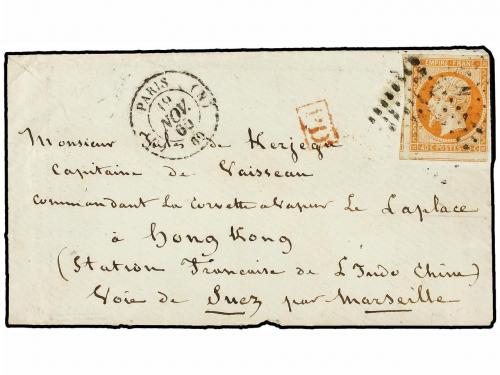 EMPIRE FRANC
40 C. POSTES 40 C.
PARIS (N)
19
NOV.
59
60
P.D.
Monsieur Jules de Kerjégu
Capitaine de Vaisseau
commandant La Corvette à Vapeur Le Laplace
à Hong Kong
(Station Francaise de L'Indo Chine)
Voie de Suez par Marseille